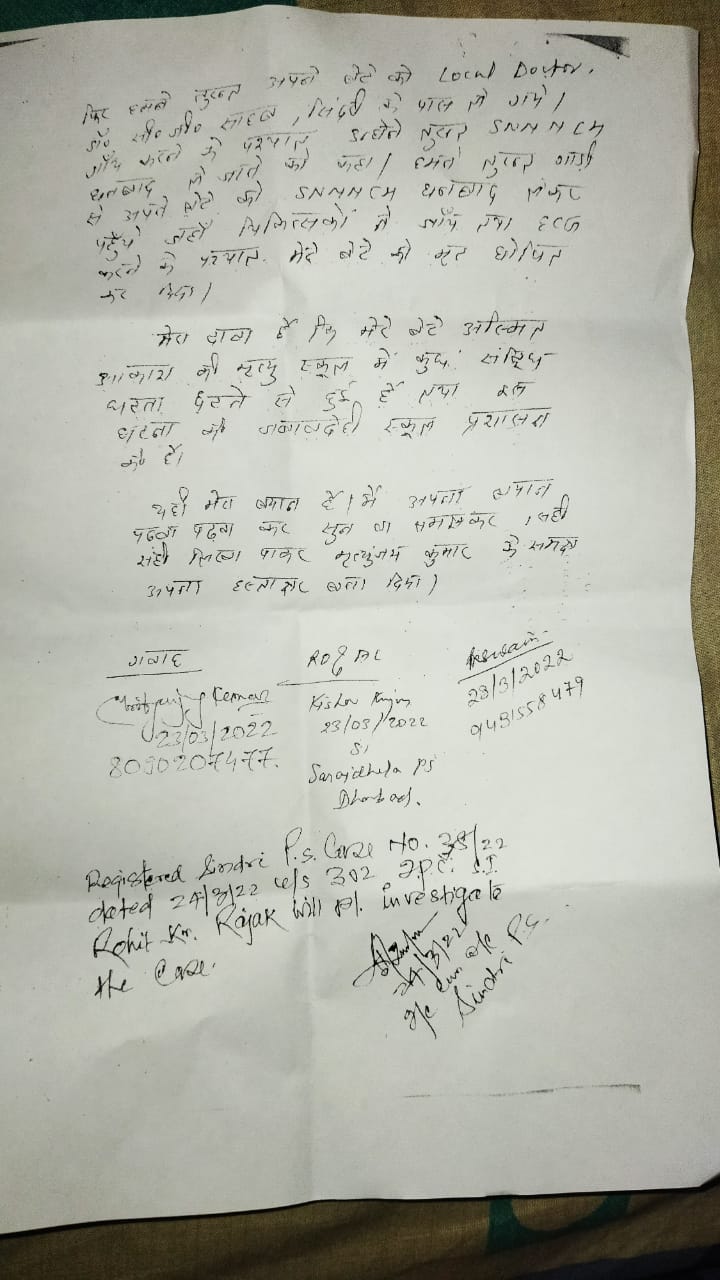 फिर हमने तुरन्त अपने बेटे को Local Doctor,
डॉ० सी० जी० साहब, सिंदरी के पास ले गये।
जाँच करने के पश्चात उन्होंने तुरन्त SNMMCH
धनबाद ले जाने को कहा। हमने तुरन्त गाड़ी
से अपने बेटे को SNMMCH धनबाद लेकर
पहुँचे जहाँ चिकित्सकों ने जाँच तथा ECG
करने के पश्चात मेरे बेटे को मृत घोषित
कर दिया।
मेरा दावा है कि मेरे बेटे
आकाश की मृत्यु स्कूल में कुछ संदिग्ध
घटना घटने से हुई है तथा इस
घटना की जवाबदेही स्कूल प्रशासन
की है।
यही मेरा बयान है। मैं अपना बयान
पढ़वा कर सुन वा समझकर, सही
सही लिखा पाकर मृत्युंजय कुमार के समक्ष
अपना हस्ताक्षर बना दिया।
गवाह
Kumar
23/03/2022
8090207477.
RO & AC
Kishor
23/03/2022
SI
Saraidhela PS
Dhanbad.
23/3/2022
9431558479
Registered Sindri P.S. Case No. 38/22
dated 24/3/22 u/s 302 I.P.C. S.I.
Rohit Kr. Rajak will pl. investigate
the Case.
24/3/22
o/c
Sindri P.S.